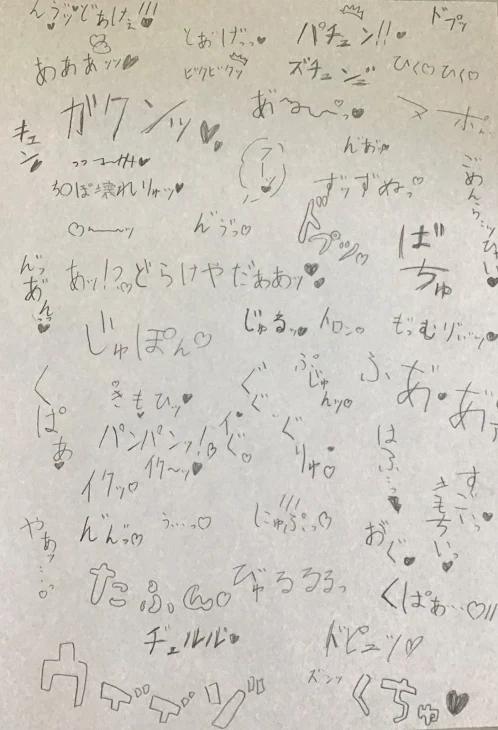 とおげっっ♥
パチュン!!♥
ドプッ
あああッッ♥
ビクビクッ
ズチュン
ひく♡ひく♡
ガクンッ♥
キュン♥
んお゛ゅ♥
ちっぽ壊れりゅッ♥
ずッずぬっ♡
ごめんらっ…ッひゃい♥
♡〜〜ッ
ん゛う゛っ♡
ドプッ♡
ばちゅ
ん゛っあ゛んっ♥
あッ!?♡どらけやだああッ♥
じゅぽん♡
じゅるッ♥
トロン♡
も゛っむり゛ぃッ♥
くぱあ♥
き♥もひッ♥
ぷじゅんッ♡
ふ
あ゛♥
パンパンッ!♡
ぐりゅ♥
はふ…っ♥
すごいっ
きもちいっ♥
イクッ♡
イク〜ッ♥
ん゛んっ♡
う…っ♡
にゅぷっ♡
お゛ぐ♥
やあッ…っ♡
たぷん♡
びゅるるるっ
くぱあ…♡
ヂュルル♥
ドピュッ♡
ズンッ
くちゅ♥